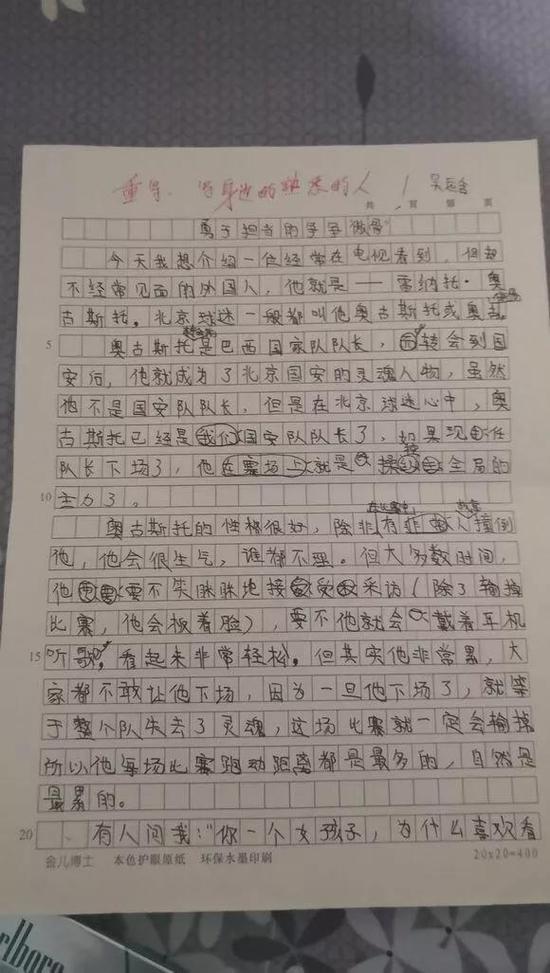 重写. 写身边的熟悉的人
共 页 第 页
勇于担当的争争微骨
今天我想介绍一位经常在电视看到，但却
不经常见面的外国人，他就是——雷纳托·奥
古斯托。北京球迷一般都叫他奥古斯托或奥古。
奥古斯托是巴西国家队队长，转会到国
5
安后，他就成为了北京国安的灵魂人物，虽然
他不是国安队队长，但是在北京球迷心中，奥
古斯托已经是我们国安队队长了，如果现任
队长下场了，他在赛场上就是操全局的
10 主力了。
奥古斯托的性格很好，除非有人撞倒
他，他会很生气，谁都不理。但大多数时间，
他要不笑眯眯地接受采访（除了输掉
比赛，他会板着脸），要不他就会戴着耳机
15 听歌，看起来非常轻松。但其实他非常累，大
家都不敢让他下场，因为一旦他下场了，就等
于整个队失去了灵魂，这场比赛就一定会输掉
所以他每场比赛跑动距离都是最多的，自然是
最累的。
20 有人问我："你一个女孩子，为什么喜欢看
金儿博士 本色护眼原纸 环保水墨印刷 20×20=400
rlboro